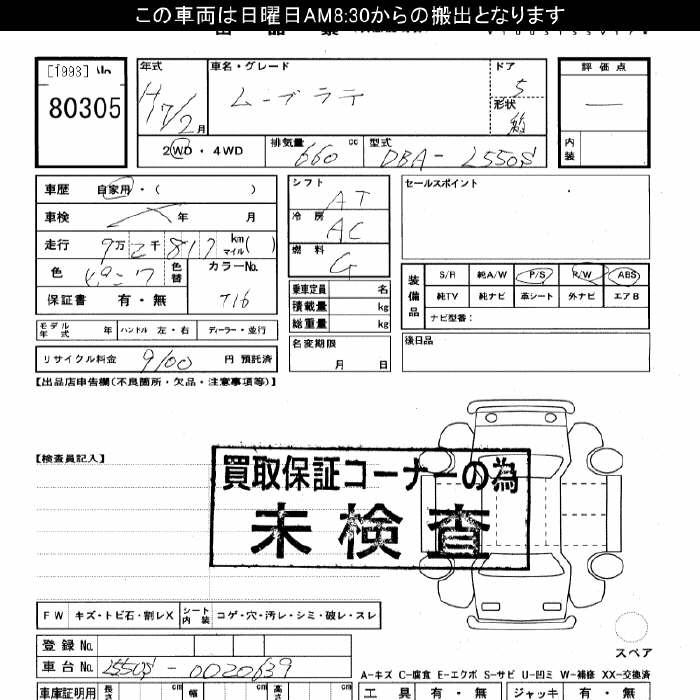 この車両は日曜日AM8:30からの搬出となります
[1993]
80305
年式
H17/2月
車名・グレード
ムーブラテ
ドア
5
形状
箱
評価点
―
内装
2WD・4WD
排気量
660 cc
型式
DBA-L550S
車歴 自家用・( )
車検 年 月
走行 9万2千817 km マイル( )
色 ピンク 色替
カラーNo.
T16
保証書 有・無
シフト
AT
冷房
AC
燃料
G
乗車定員 名
積載量 kg
総重量 kg
セールスポイント
装備品
S/R 純A/W P/S R/W ABS
純TV 純ナビ 革シート 外ナビ エアB
ナビ型番:
モデル年式 年 ハンドル 左・右 ディーラー・並行
名変期限
月 日
後日品
リサイクル料金 9100 円 預託済
【出品店申告欄(不良箇所・欠品・注意事項等)】
【検査員記入】
買取保証コーナーの為
未検査
FW キズ・トビ石・割レX シート内装 コゲ・穴・汚レ・シミ・破レ・スレ
スペア
登録No.
車台No. L550S-0020639
A-キズ C-腐食 E-エクボ S-サビ U-凹ミ W-補修 XX-交換済
車庫証明用 長さ cm 幅 cm 高さ cm
工具 有・無 ジャッキ 有・無